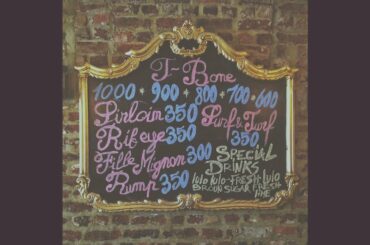 T-Bone
1000 - 900 - 800 - 700 - 600
Sirloin 350
Rib eye 350
Fille Mignon 300
Rump 350
Surf & Turf
350
SPECIAL
DRINKS
lulo lulo-FRESH lulo
BROUN SUGAR FRESH